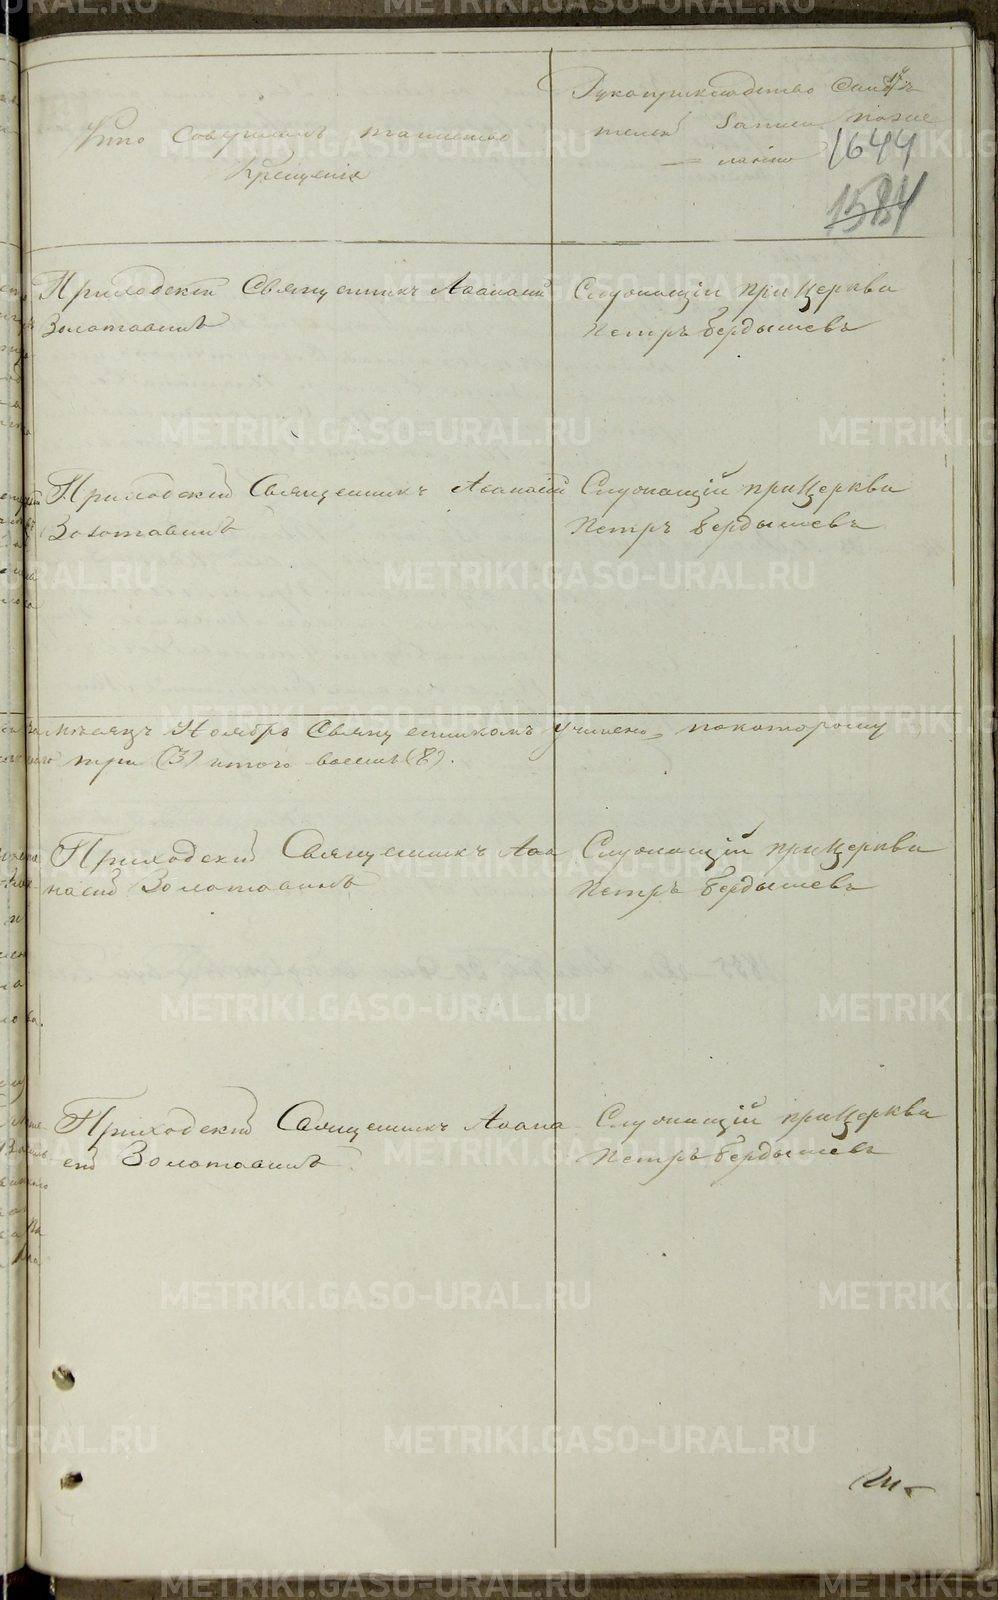 Кто Совершалъ таинство
Крещенія
Рукоприкладство Свидѣ
телей записи по же
ланію
1644
1584
Приходскій Священникъ Аѳанасій
Золотавинъ
Служащій при Церкви
Петръ Бердышевъ
Приходскій Священникъ Аѳанасій
Золотавинъ
Служащій при Церкви
Петръ Бердышевъ
мѣсяцъ Ноябрь Священникомъ учинено, покоторому
три (3) итого восемь (8).
Приходскій Священникъ Аѳа
насій Золотавинъ
Служащій при Церкви
Петръ Бердышевъ
Приходскій Священникъ Аѳана
сій Золотавинъ
Служащій при Церкви
Петръ Бердышевъ
METRIKI.GASO-URAL.RU